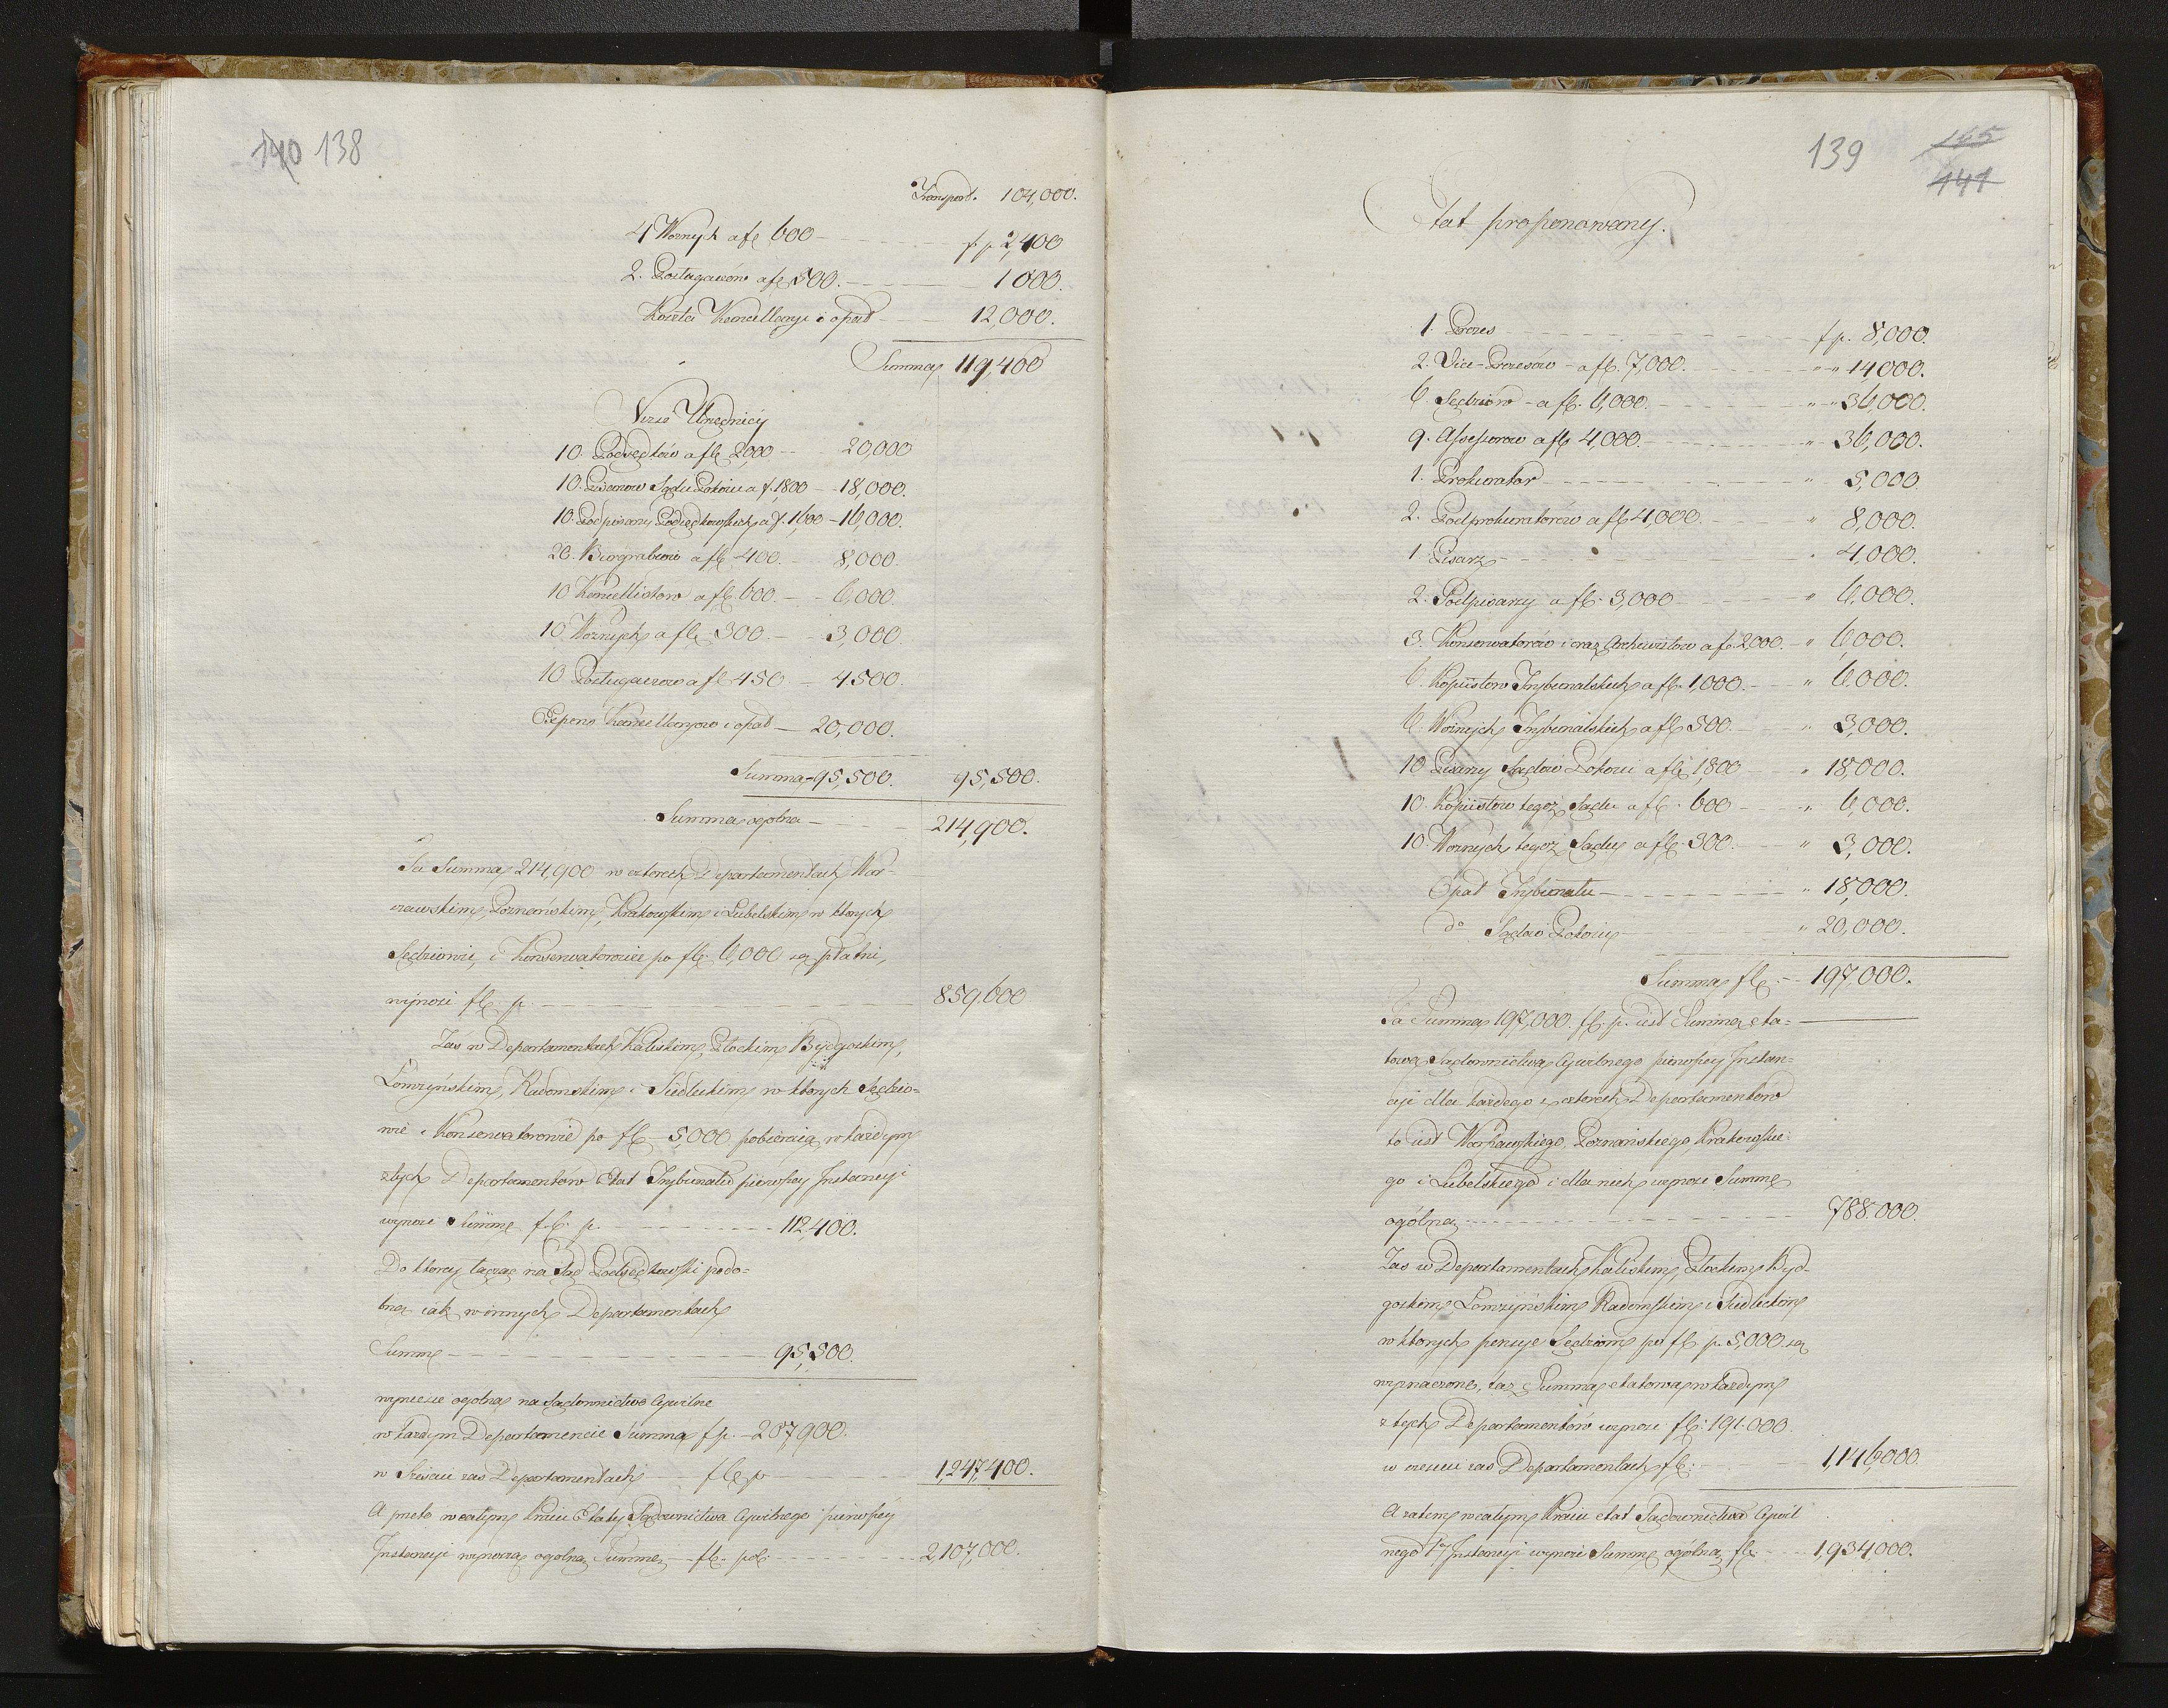 140 138
Transport. 104,000.
4 Woznych a fl 600 f. p 2,400
2. Posługaczów a fl 500. 1000.
Koszta Kancellaryi i opał 12,000.
Summa 119,400
Niżsi Urzędnicy
10. Podsędków a fl 2000 20,000
10. Pisarzow Sądu Pokoiu a f. 1800 18,000.
10. Podpisarzy Podsędkowskich a f. 1,600 16,000.
20. Burgrabiow a fl. 400. 8,000.
10 Kancellistow a fl 600 6,000.
10. Woźnych a fl. 300. 3,000
10 Posługaczow a fl 450 4500.
Expens Kancellaryow i opał 20,000.
Summa 95,500. 95,500.
Summa ogolna 214,900.
Ta Summa 214,900 w czterech Departamentach War-
szawskim, Poznańskim, Krakowskim i Lubelskim w ktorych
Sędziowie, i Konserwatorowie po fl. 6,000 są płatni,
wynosi fl p. 859,600
Zaś w Departamentach Kaliskim, Płockim, Bydgoskim,
Łomżyńskim, Radomskim i Siedleckim w ktorych Sędzio-
wie i Konserwatorowie po fl 5,000 pobieraią, w każdym
z tych Departamentów Etat Trybunału pierwszey Instancyi
wynosi Summę fl. p. 112,400.
Do ktorey łącząc na Sąd Podsędkowski podo-
bną iak w innych Departamentach
Summę 95,500.
wyniesie ogolna na Sądownictwo Cywilne
w każdym Departamencie Summa f p. 207,900.
w Sześciu zas Departamentach fl p 1,247,400.
A przeto w całym Kraiu Etaty Sądownictwa Cywilnego pierwszey
Instancyi wynoszą ogolną Summę fl. pol. 2,107,000.
139 145
141
Etat proponowany.
1. Prezes f p. 8,000.
2. Vice-Prezesów a fl. 7,000. 14,000.
6. Sędziów a fl. 6,000. 36,000.
9. Assessorow a fl 4,000. 36,000.
1. Prokurator 5,000.
2. Podprokuratorów a fl 4,000. 8,000.
1 Pisarz 4,000.
2. Podpisarzy a fl. 3,000 6,000.
3. Konserwatorów i oraz Archiwistow a f. 2000. 6,000.
6. Kopiistow Trybunalskich a fl. 1,000. 6,000.
6. Woźnych Trybunalskich a fl 500. 3,000.
10 Pisarzy Sądow Pokoiu a fl 1,800 18,000.
10. Kopiistow tegoż Sądu a fl. 600 6,000.
10. Woźnych tegoż Sądu a fl. 300. 3,000.
Opał Trybunału 18,000.
do Sądów Pokoiu 20,000.
Summa fl. 197,000.
Ta Summa 197,000. fl. p. iest Summą eta-
tową Sądownictwa Cywilnego pierwszey Instan-
cyi dla każdego z czterech Departamentów
to iest Warszawskiego, Poznańskiego, Krakowskie-
go i Lubelskiego i dla nich wynosi Summę
ogólną 788.000.
Zas w Departamentach Kaliskim, Płockim, Byd-
goskim, Łomżyńskim, Radomskim i Siedleckim
w ktorych pensye Sędziom po fl p. 5,000. są
wyznaczone, taż Summa etatowa w każdym
z tych Departamentów wynosi fl. 191.000.
w sześciu zas Departamentach fl. 1,146,000.
A zatem w całym Kraiu etat Sądownictwa Cywil
nego 1ey Instancyi wynosi Summę ogólną fl 1,934,000.